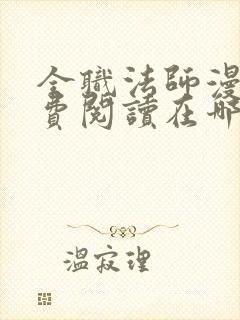 全職法師漫
費閱讀在哪
溫寂理